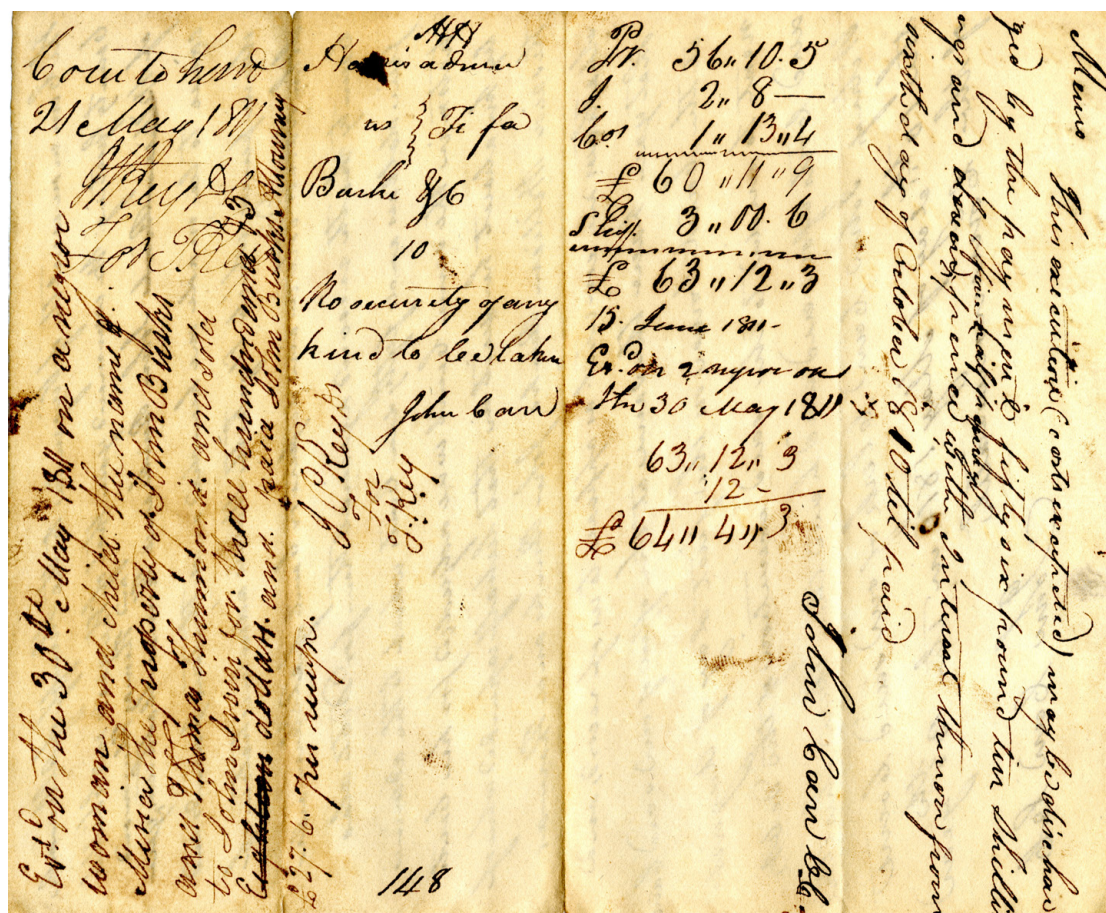 Come to hand
21 May 1811
Exd. on the 30th. May 1811 on a negroe
woman and child the name of
Miner the property of John Burks
and Thomas Thurmond. and sold
to John Irvin for three hundred and 73
dollars. and paid John Burks Attorney
£27.6. per
Harris admr
vs } Fi fa
Burks &c
10
No security of any
kind to be taken
John Carr
J P Key DS
For
J. Key
148
Pr. 56 " 10 . 5
J. 2 " 8 —
Cos 1 " 13 " 4
£ 60 " 11 " 9
Shff. 3 " 00 . 6
£ 63 " 12 " 3
15. June 1811 -
Exd. on 2 negroe on
the 30 May 1811
63 " 12 " 3
12 -
£ 64 " 4 " 3
Memo This execution (costs excepted) may be dischar
ged by the payment of fifty six pound ten shilli
ngs and five pence half penny with Interest thereon from
sixth day of October 1810 til paid
John Carr Clk.